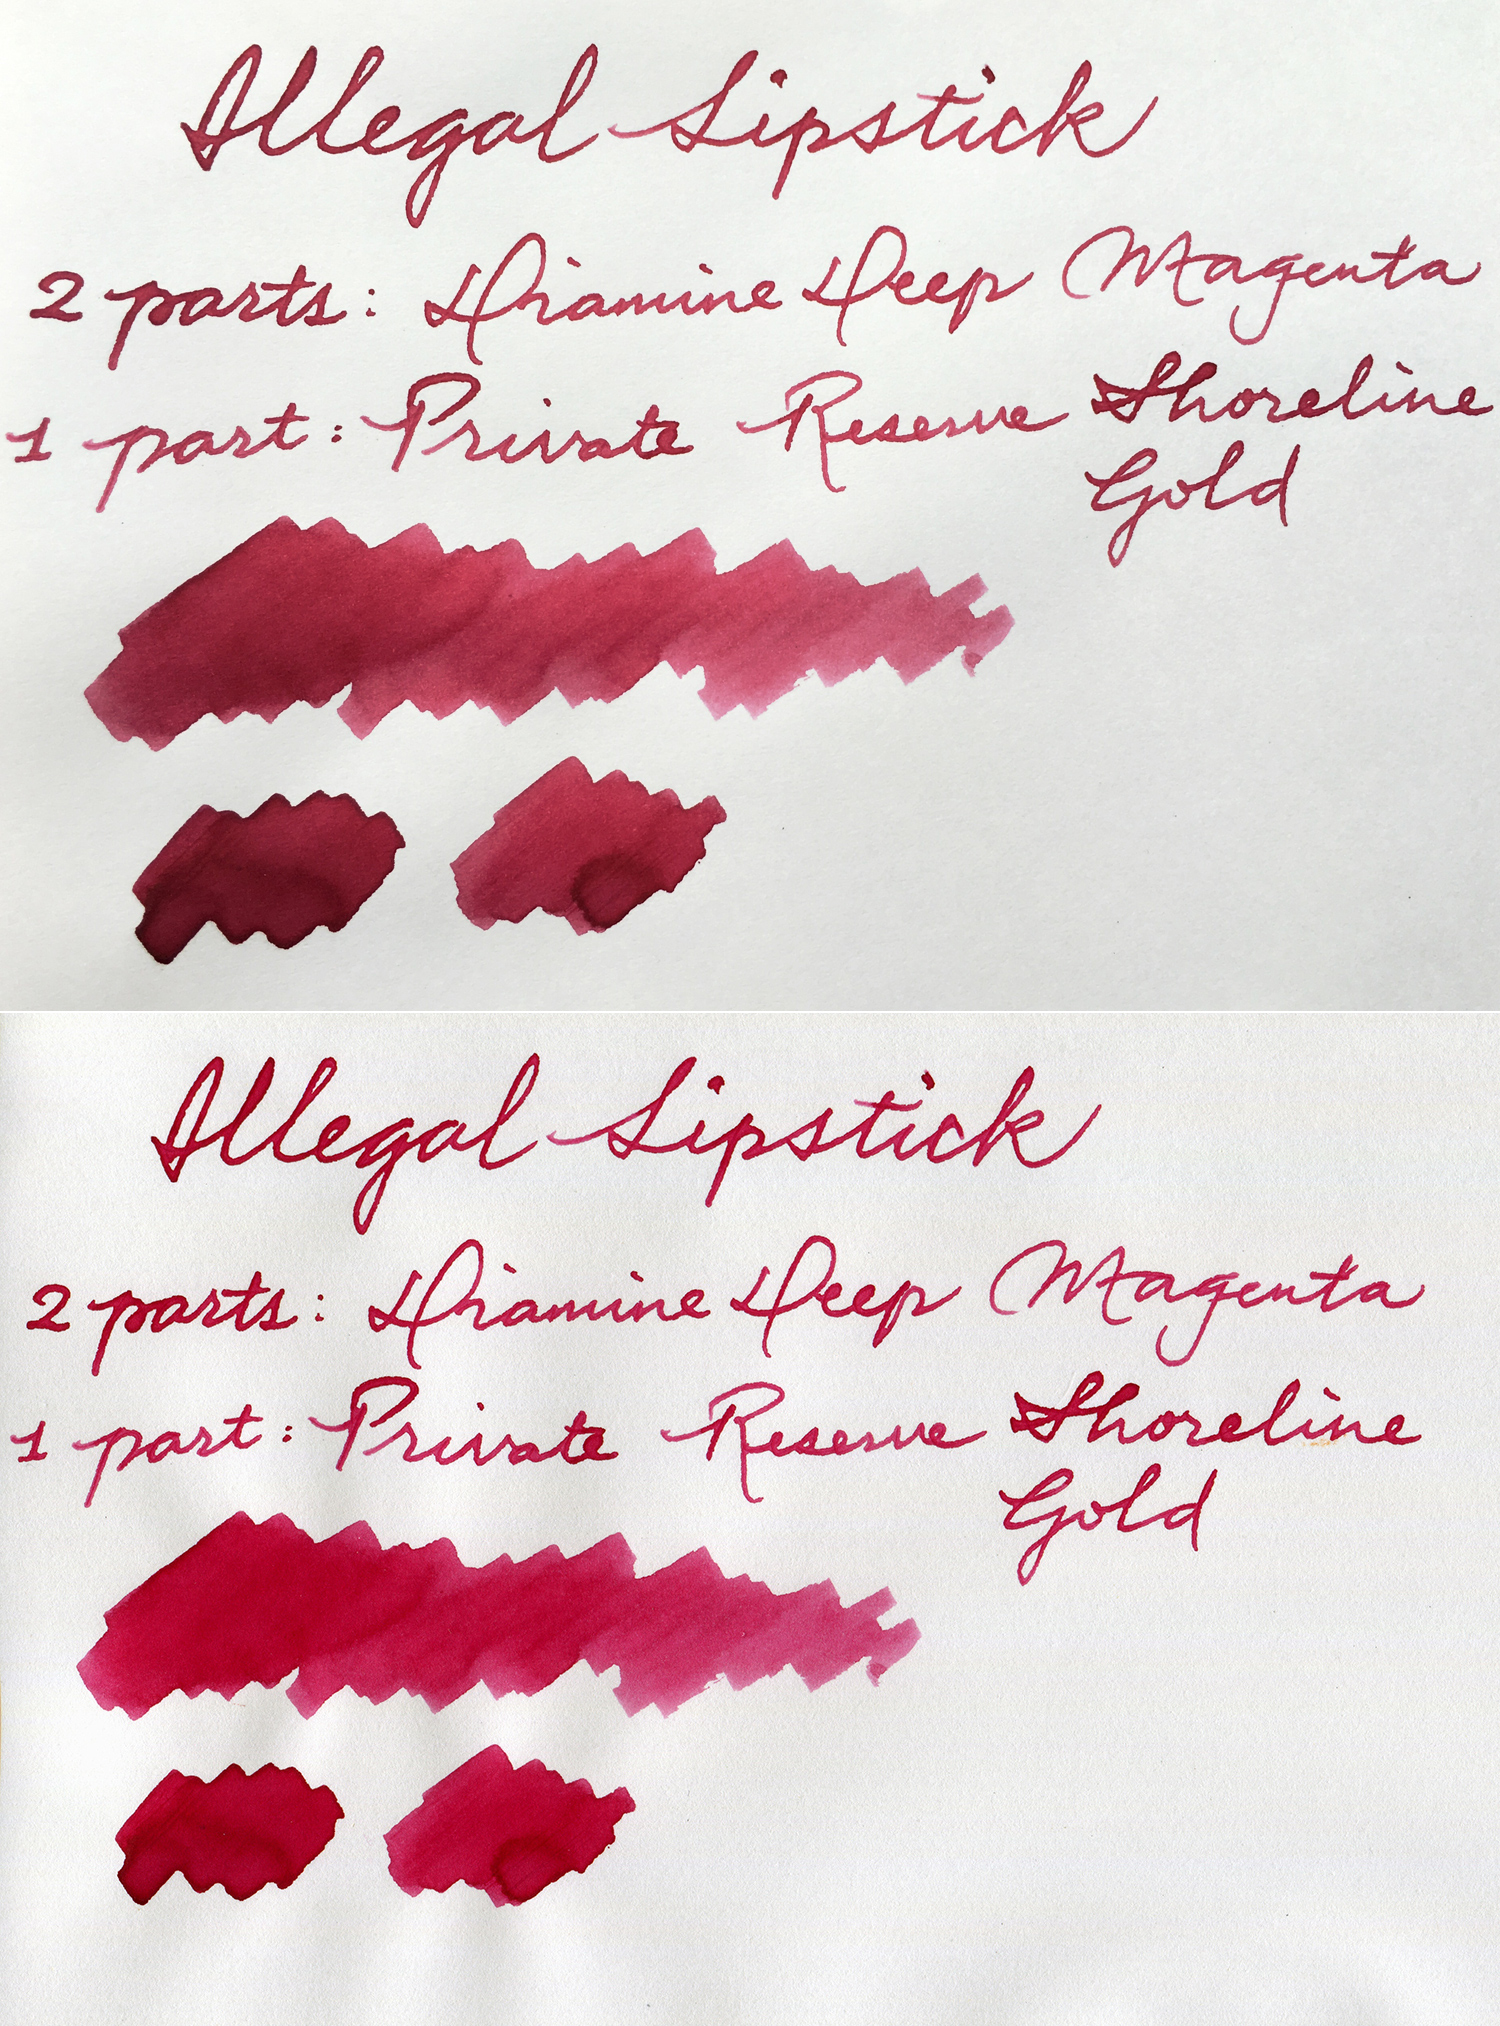 Illegal Lipstick
2 parts: Diamine Deep Magenta
1 part: Private Reserve Shoreline
Gold
Illegal Lipstick
2 parts: Diamine Deep Magenta
1 part: Private Reserve Shoreline
Gold